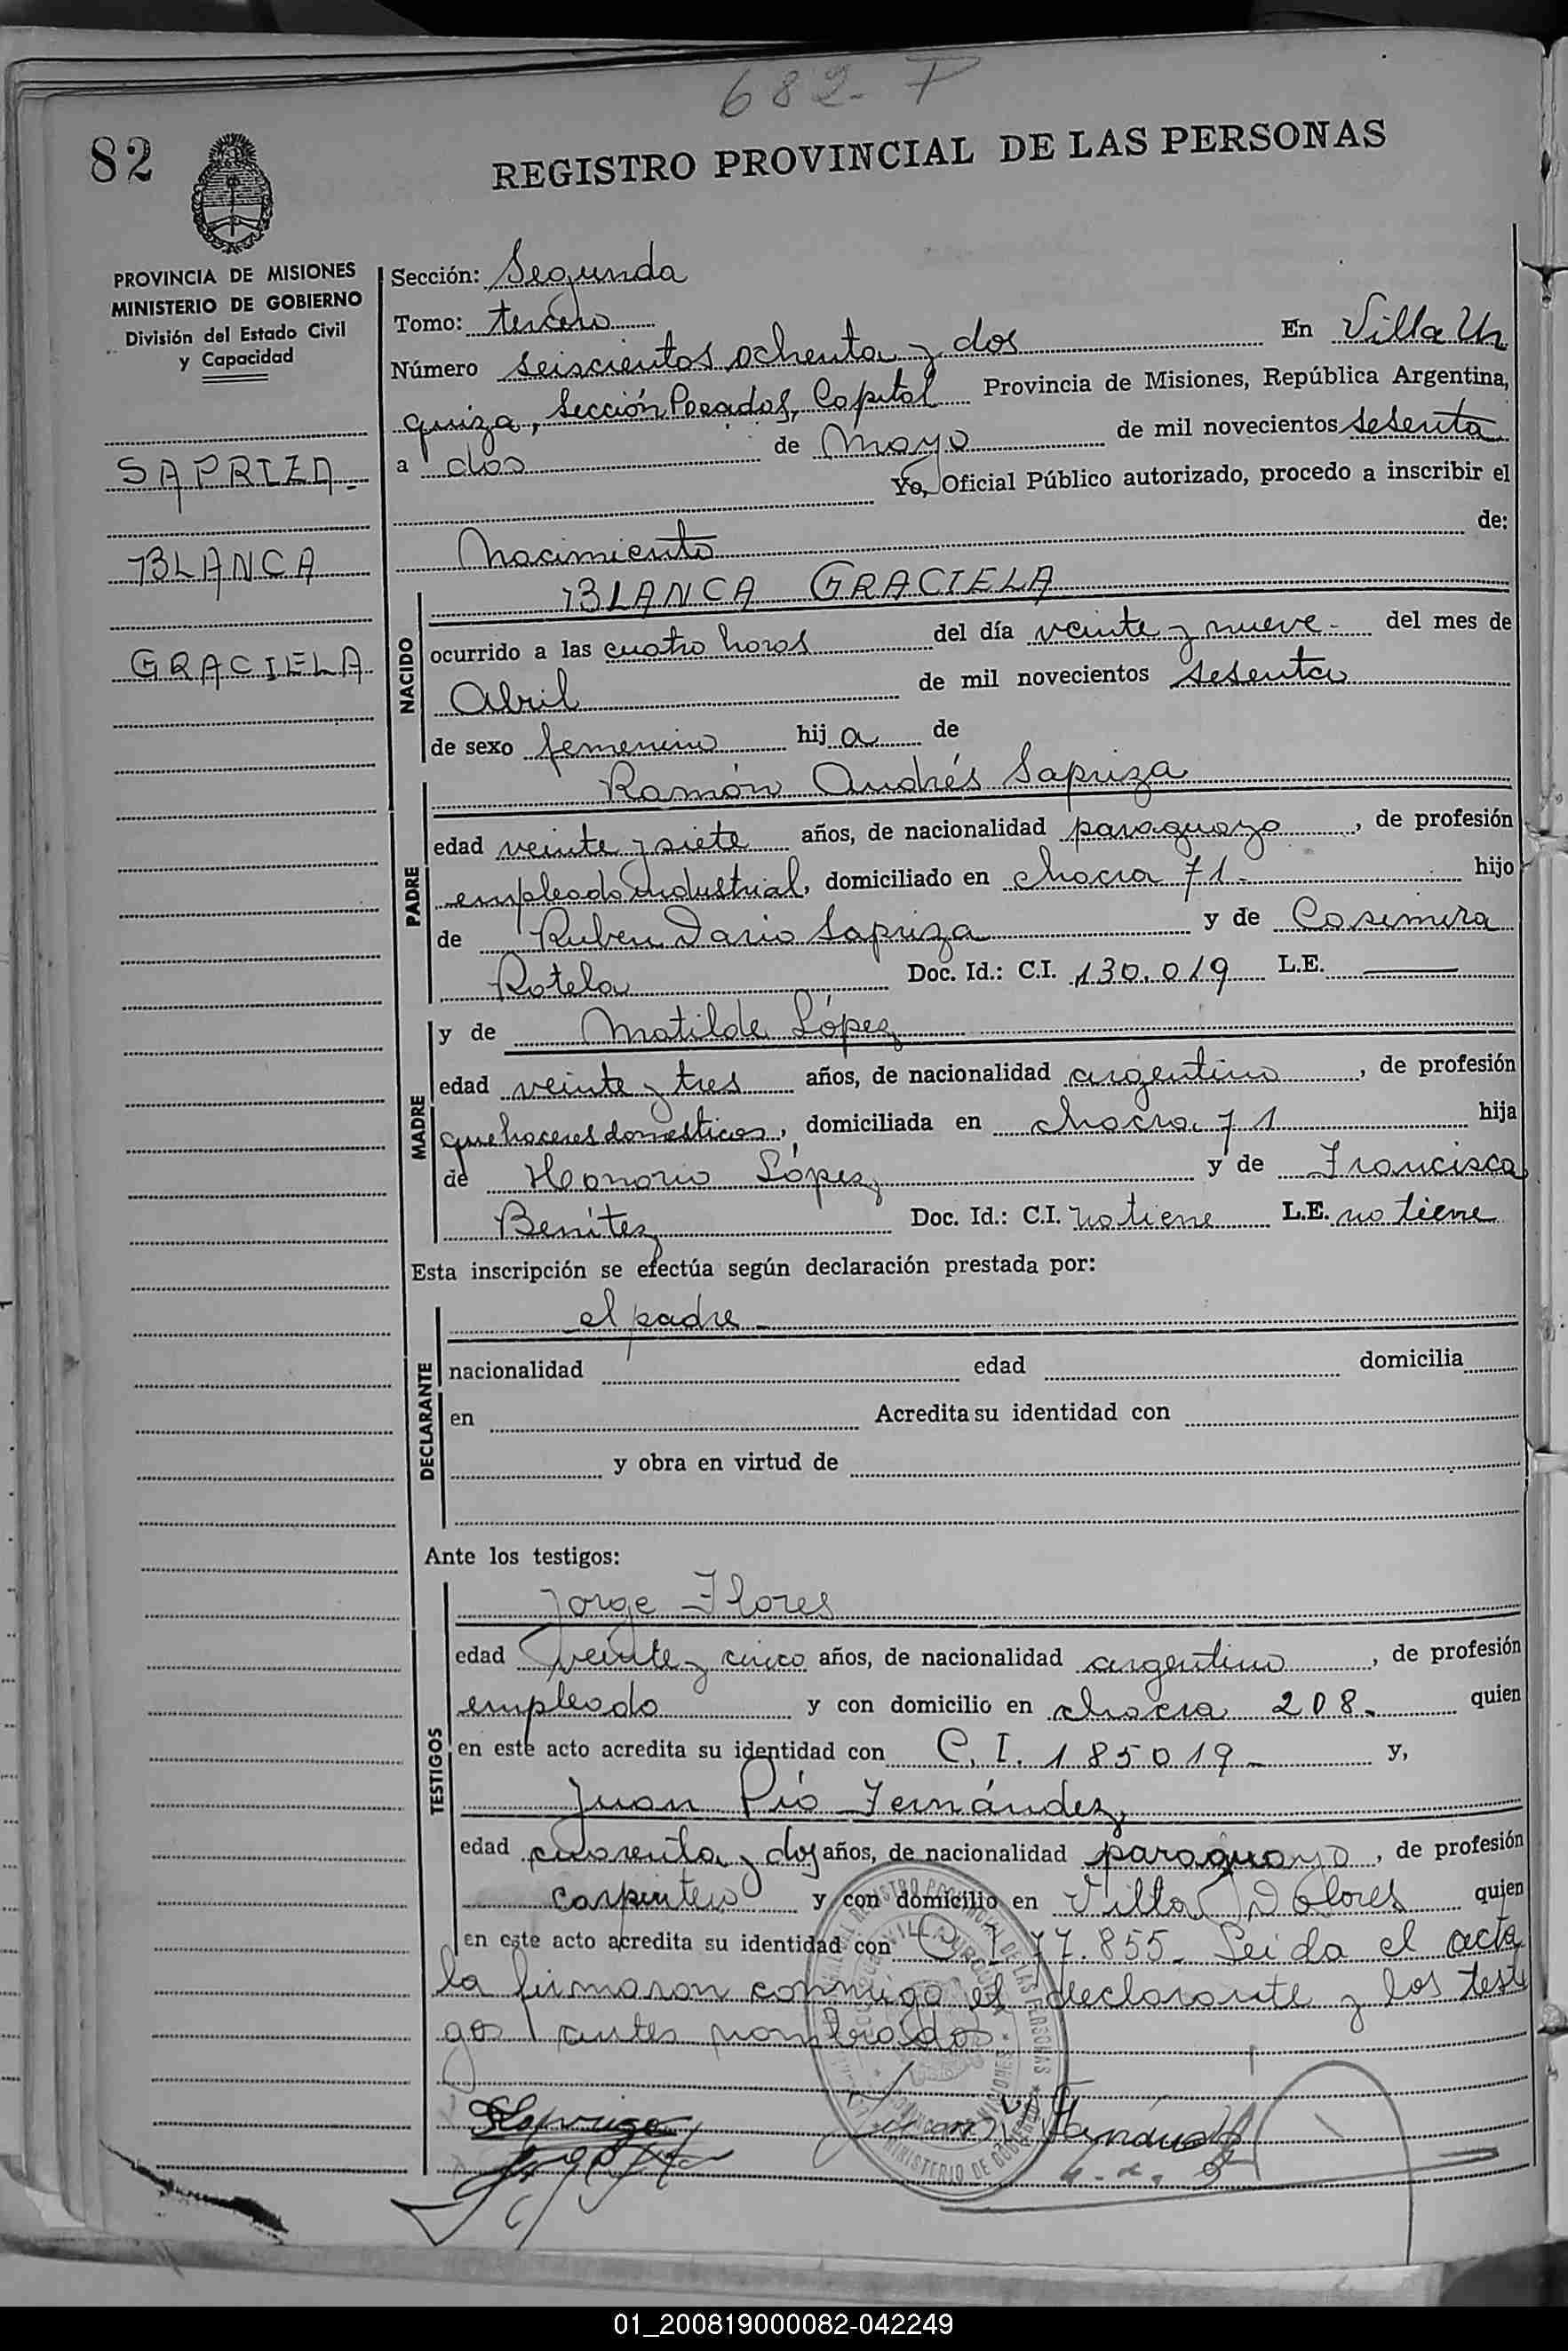 682- P
82
REGISTRO PROVINCIAL DE LAS PERSONAS
PROVINCIA DE MISIONES
MINISTERIO DE GOBIERNO
División del Estado Civil
y Capacidad
SAPRIZA.
BLANCA
GRACIELA
Sección: Segunda
Tomo: tercero
Número seiscientos ochenta y dos En Villa Ur
quiza, Sección Posadas, Capital Provincia de Misiones, República Argentina,
a dos de Mayo de mil novecientos sesenta
Yo, Oficial Público autorizado, procedo a inscribir el
Nacimiento de:
NACIDO
BLANCA GRACIELA
ocurrido a las cuatro horas del día veinte y nueve- del mes de
Abril de mil novecientos sesenta
de sexo femenino hij a de
PADRE
Ramón Andrés Sapriza
edad veinte y siete años, de nacionalidad paraguayo, de profesión
empleado industrial, domiciliado en chacra 71- hijo
de Ruben Dario Sapriza y de Casimira
Rotela Doc. Id.: C.I. 130.019 L.E. ——
MADRE
y de Matilde López
edad veinte y tres años, de nacionalidad argentina, de profesión
quehaceres domesticos, domiciliada en chacra 71 hija
de Honorio López y de Francisca
Benítez Doc. Id.: C.I. no tiene L.E. no tiene
Esta inscripción se efectúa según declaración prestada por:
DECLARANTE
el padre-
nacionalidad edad domicilia
en Acredita su identidad con
y obra en virtud de
Ante los testigos:
TESTIGOS
Jorge Flores
edad veinte y cinco años, de nacionalidad argentino, de profesión
empleado y con domicilio en chacra 208- quien
en este acto acredita su identidad con C. I. 185019- y,
Juan Pío Fernández,
edad cuarenta y dos años, de nacionalidad paraguayo, de profesión
carpintero y con domicilio en Villa Dolores quien
en este acto acredita su identidad con C I 77.855- Leida el acta
la firmaron conmigo el declarante y los testi
gos antes nombrados
01_200819000082-042249